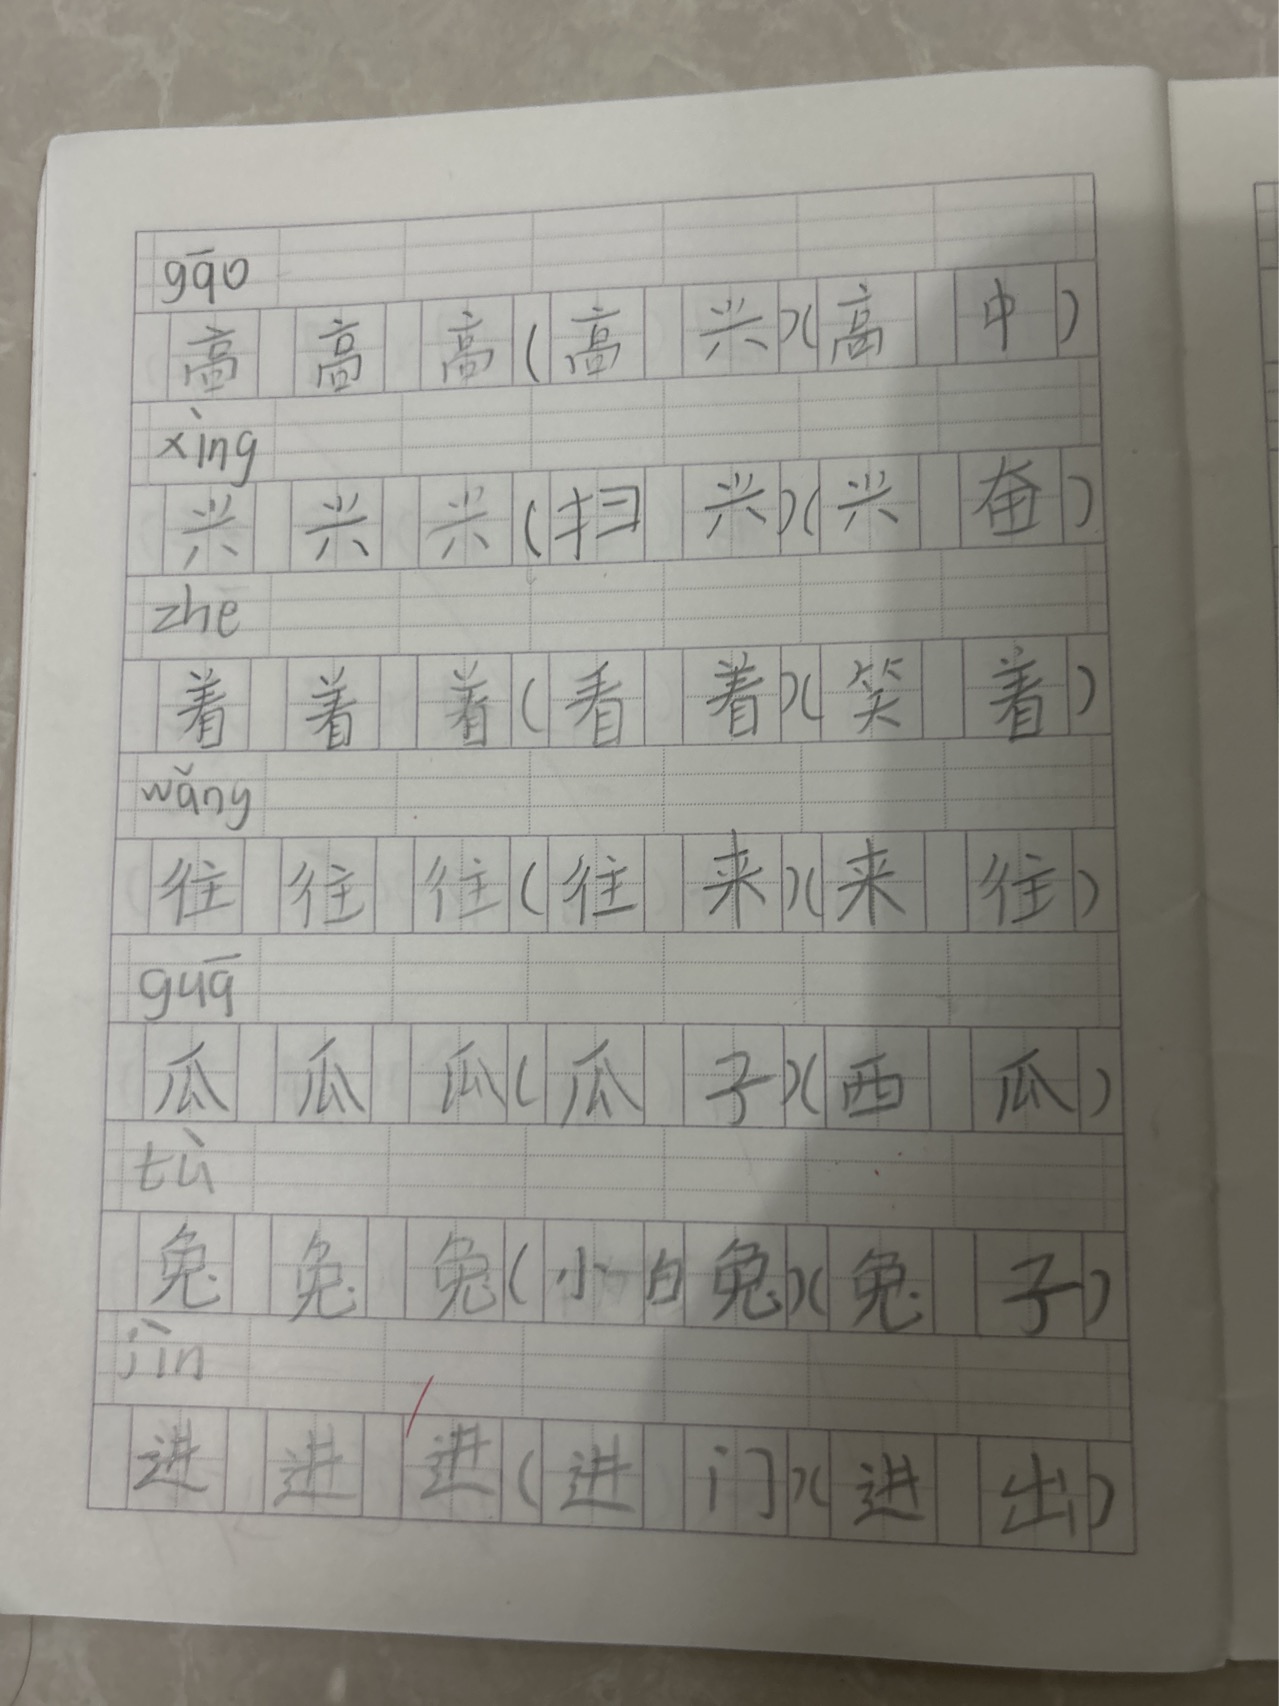 gāo
高 高 高 ( 高 兴 ) ( 高 中 )
xìng
兴 兴 兴 ( 扫 兴 ) ( 兴 奋 )
zhe
着 着 着 ( 看 着 ) ( 笑 着 )
wǎng
往 往 往 ( 往 来 ) ( 来 往 )
guā
瓜 瓜 瓜 ( 瓜 子 ) ( 西 瓜 )
tù
兔 兔 兔 ( 小 白 兔 ) ( 兔 子 )
jìn
进 进 进 ( 进 门 ) ( 进 出 )